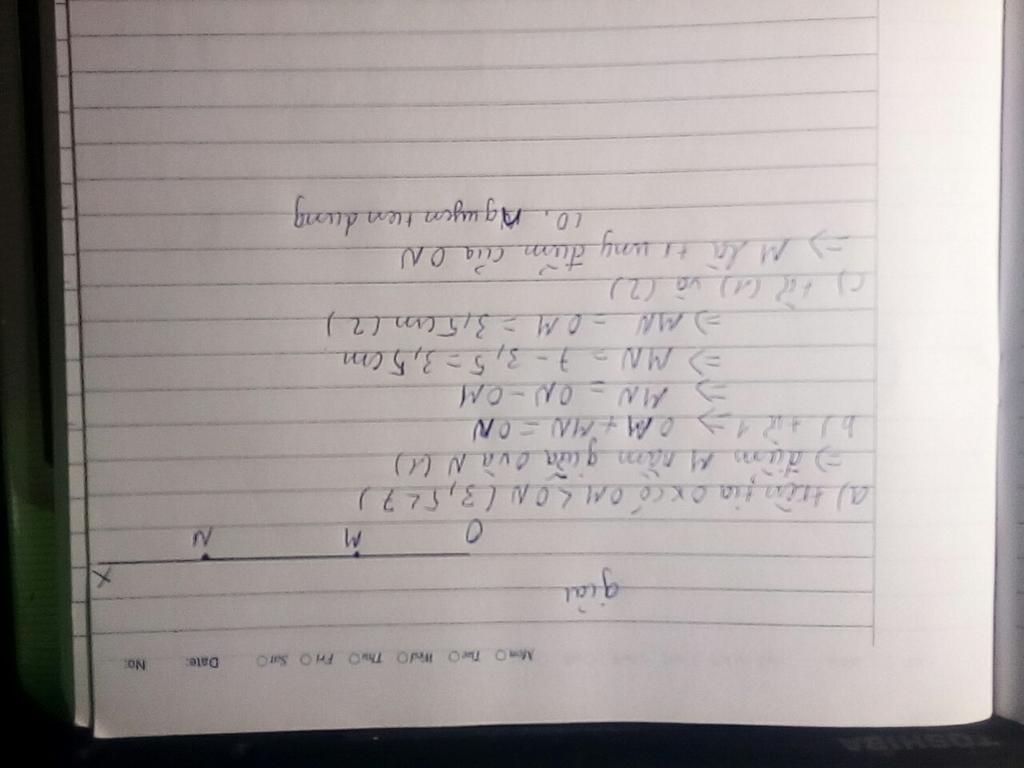 TOSHIBA
Mon Tue Wed Thu Fri Sat Date: No:
giải
x
O M N
a) trên tia Ox có OM < ON (3,5 < 7)
=> điểm M nằm giữa O và N (1)
b) từ 1 => OM + MN = ON
=> MN = ON - OM
=> MN = 7 - 3,5 = 3,5 cm
=> MN = OM = 3,5 cm (2)
c) từ (1) và (2)
=> M là trung điểm của ON
Nguyen tien dung